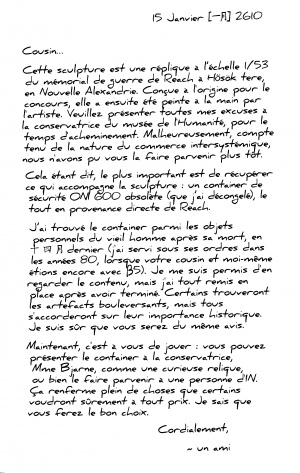 15 Janvier [一月] 2610
Cousin...
Cette sculpture est une réplique a l'échelle 1/53
du mémorial de guerre de Reach a Hösök tere,
en Nouvelle Alexandrie. Conçue a l'origine pour le
concours, elle a ensuite été peinte a la main par
l'artiste. Veuillez présenter toutes mes excuses a
la conservatrice du musée de l'Humanité, pour le
temps d'acheminement. Malheureusement, compte
tenu de la nature du commerce intersystémique,
nous n'avons pu vous la faire parvenir plus tôt.
Cela étant dit, le plus important est de récupérer
ce qui accompagne la sculpture : un container de
sécurité ONI 600 obsolète (que j'ai décongelé), le
tout en provenance directe de Reach.
J'ai trouvé le container parmi les objets
personnels du vieil homme après sa mort, en
十四月 dernier (j'ai servi sous ses ordres dans
les années 80, lorsque votre cousin et moi-même
étions encore avec B5). Je me suis permis d'en
regarder le contenu, mais j'ai tout remis en
place après avoir terminé. Certains trouveront
les artefacts bouleversants, mais tous
s'accorderont sur leur importance historique.
Je suis sûr que vous serez du même avis.
Maintenant, c'est a vous de jouer : vous pouvez
présenter le container a la conservatrice,
Mme Bjarne, comme une curieuse relique,
ou bien le faire parvenir a une personne d'IN.
Ça renferme plein de choses que certains
voudront sûrement a tout prix. Je sais que
vous ferez le bon choix.
Cordialement,
~ un ami